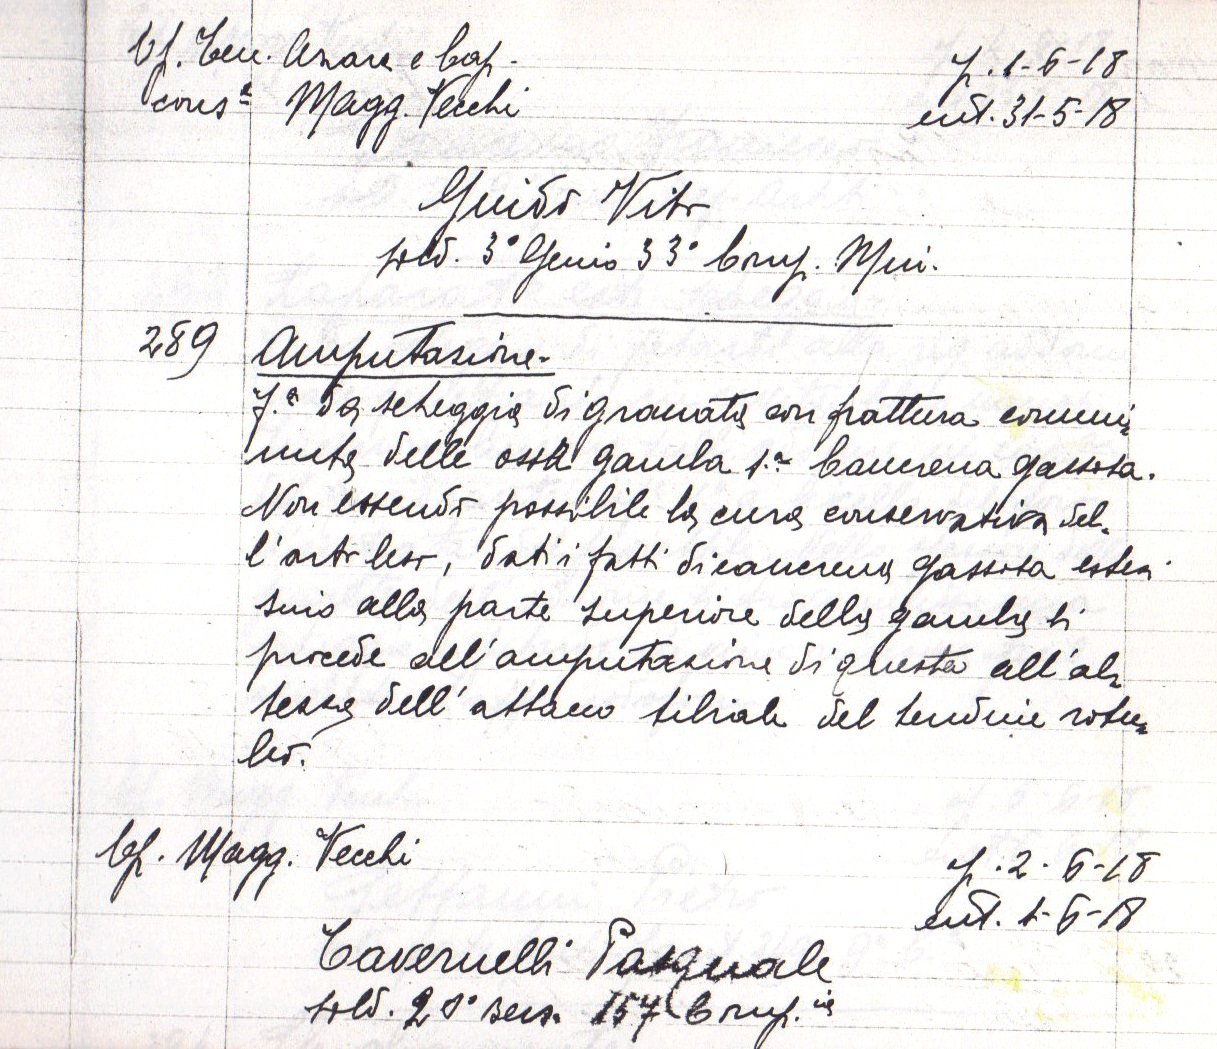 Op. Ten. Azara e Cap.
cons.ª Magg. Vecchi
p. 1-6-18
ent. 31-5-18
Guido Vito
sold. 3° Genio 33° Comp. Min.
289 Amputazione.
f.ª da scheggia di granata con frattura commi
nuta delle ossa gamba s.ª Cancrena gassosa.
Non essendo possibile la cura conservativa del
l'arto leso, dati i fatti di cancrena gassosa esten
sivo alla parte superiore della gamba si
procede all'amputazione di questa all'al
tezza dell'attacco tibiale del tendine rotu
leo.
Op. Magg. Vecchi
p. 2-6-18
ent. 1-6-18
Tavernelli Pasquale
sold. 28° 157 Comp.ia